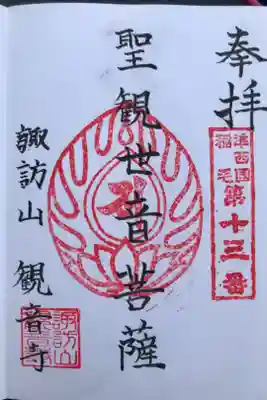 奉拝
準西国
稲毛
第十三番
聖観世音菩薩
諏訪山 観音寺